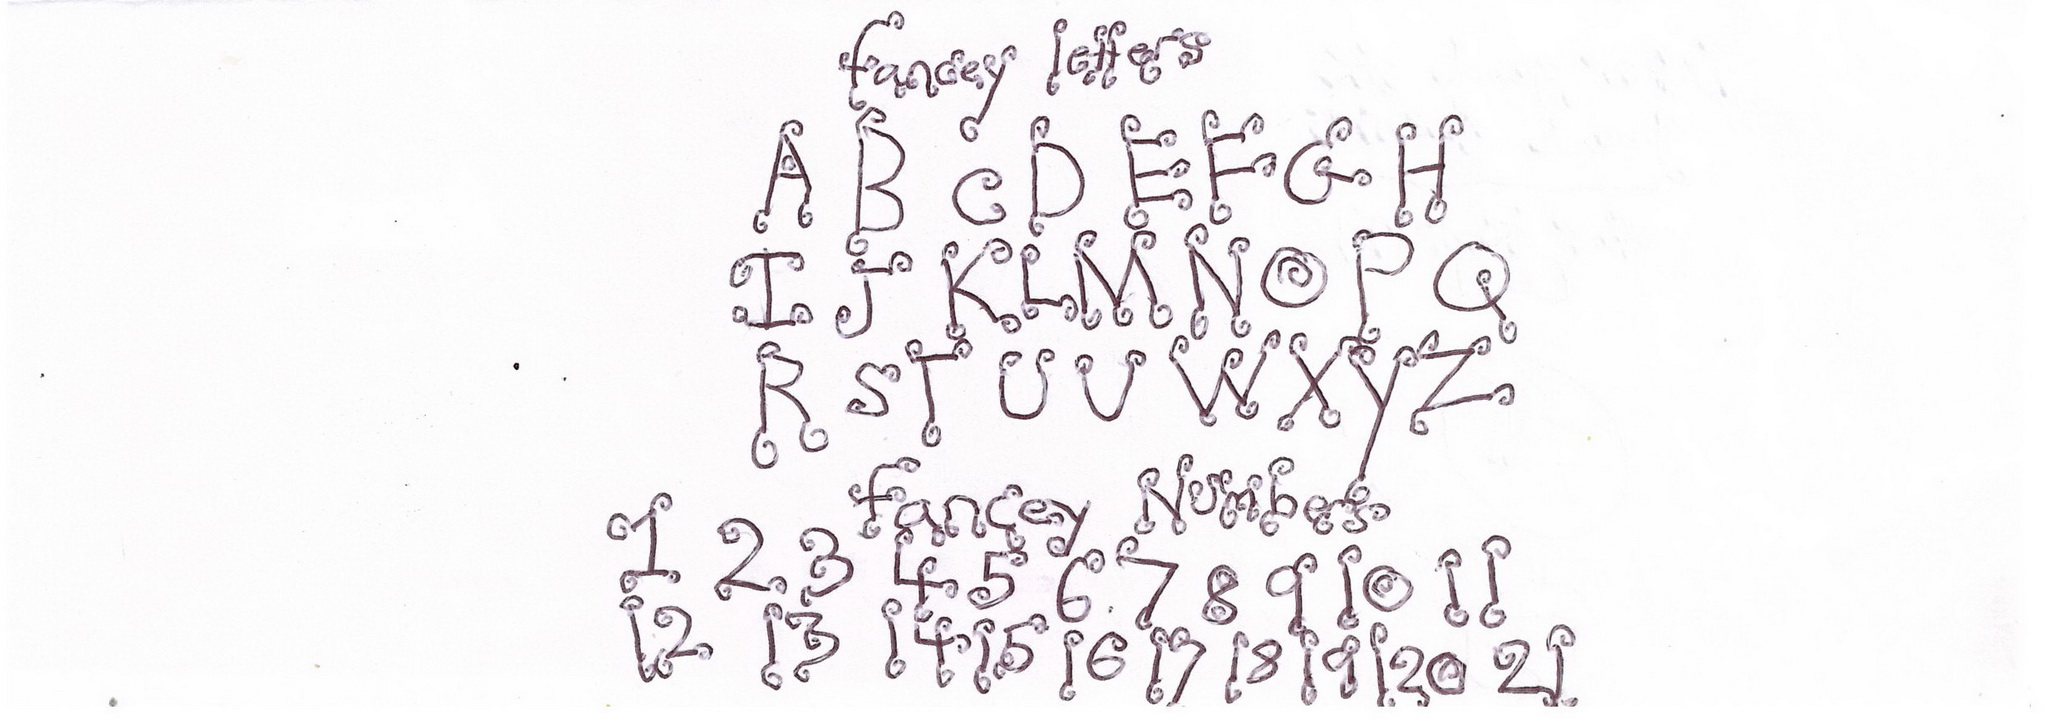 fancey letters
A B c D E F G H
I J K L M N O P Q
R S T U V W X Y Z
fancey Numbers
1 2 3 4 5 6 7 8 9 10 11
12 13 14 15 16 17 18 19 120 21